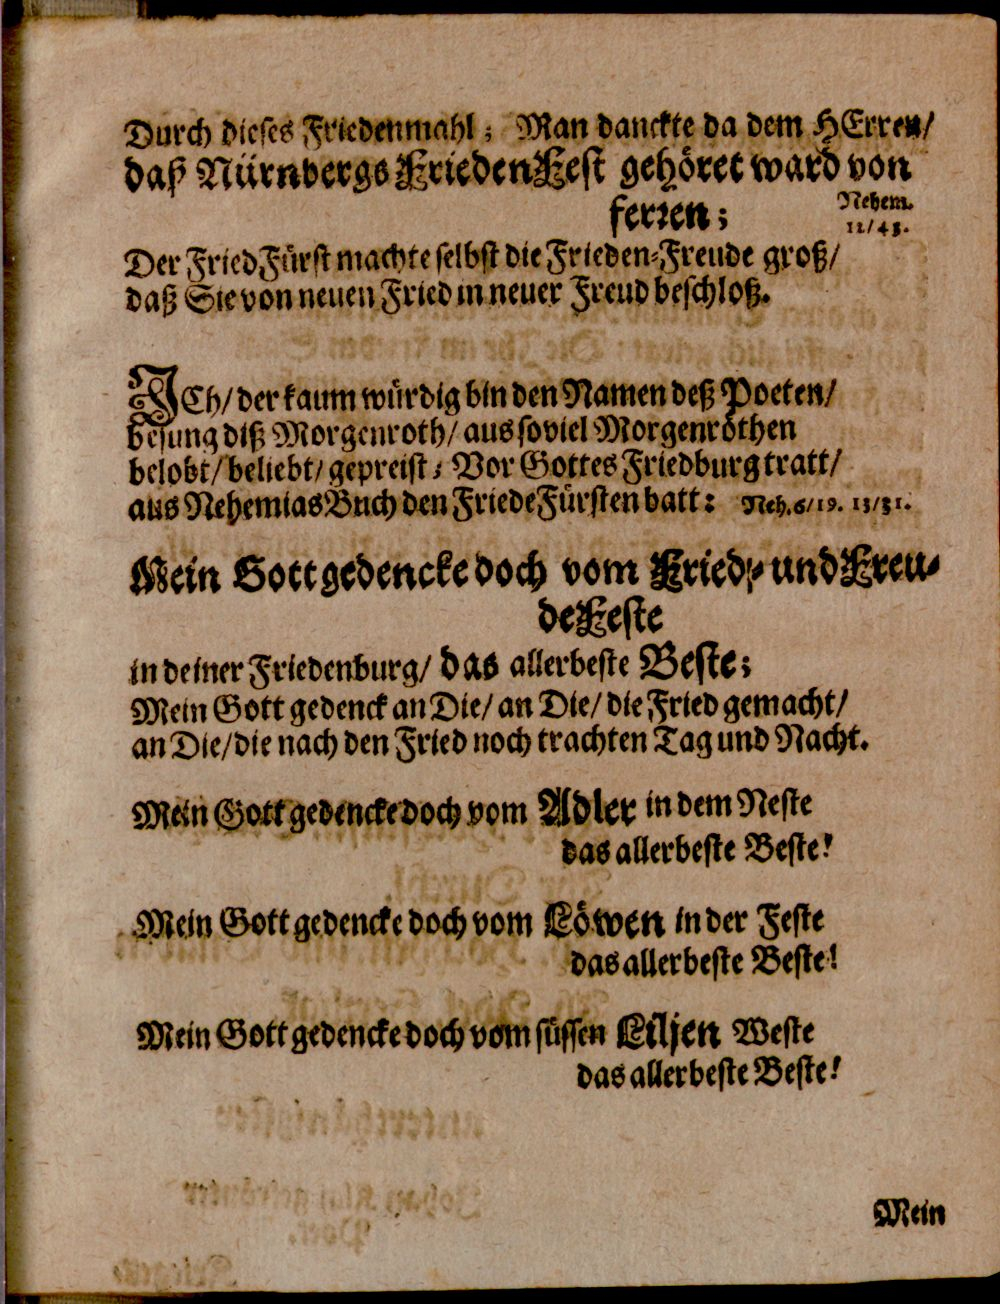 Durch dieses Friedenmahl; Man danckte da dem HErren/
daß Nürnbergs FriedenFest gehöret ward von
ferren;
Nehem. 12/43.
Der FriedFürst machte selbst die Frieden-Freude groß/
daß Sie von neuen Fried in neuer Freud beschloß.
ICh/ der kaum würdig bin den Namen deß Poeten/
besung diß Morgenroth/ aus soviel Morgenröthen
belobt/ beliebt/ gepreist; Vor Gottes Friedburg tratt/
aus Nehemias Buch den FriedeFürsten batt: Neh. 6/19. 13/31.
Mein Gott gedencke doch vom Fried- und Freu-
deFeste
in deiner Friedenburg/ das allerbeste Beste;
Mein Gott gedenck an Die/ an Die/ die Fried gemacht/
an Die/ die nach den Fried noch trachten Tag und Nacht.
Mein Gott gedencke doch vom Adler in dem Neste
das allerbeste Beste!
Mein Gott gedencke doch vom Löwen in der Feste
das allerbeste Beste!
Mein Gott gedencke doch vom süssen Liljen Weste
das allerbeste Beste!
Mein